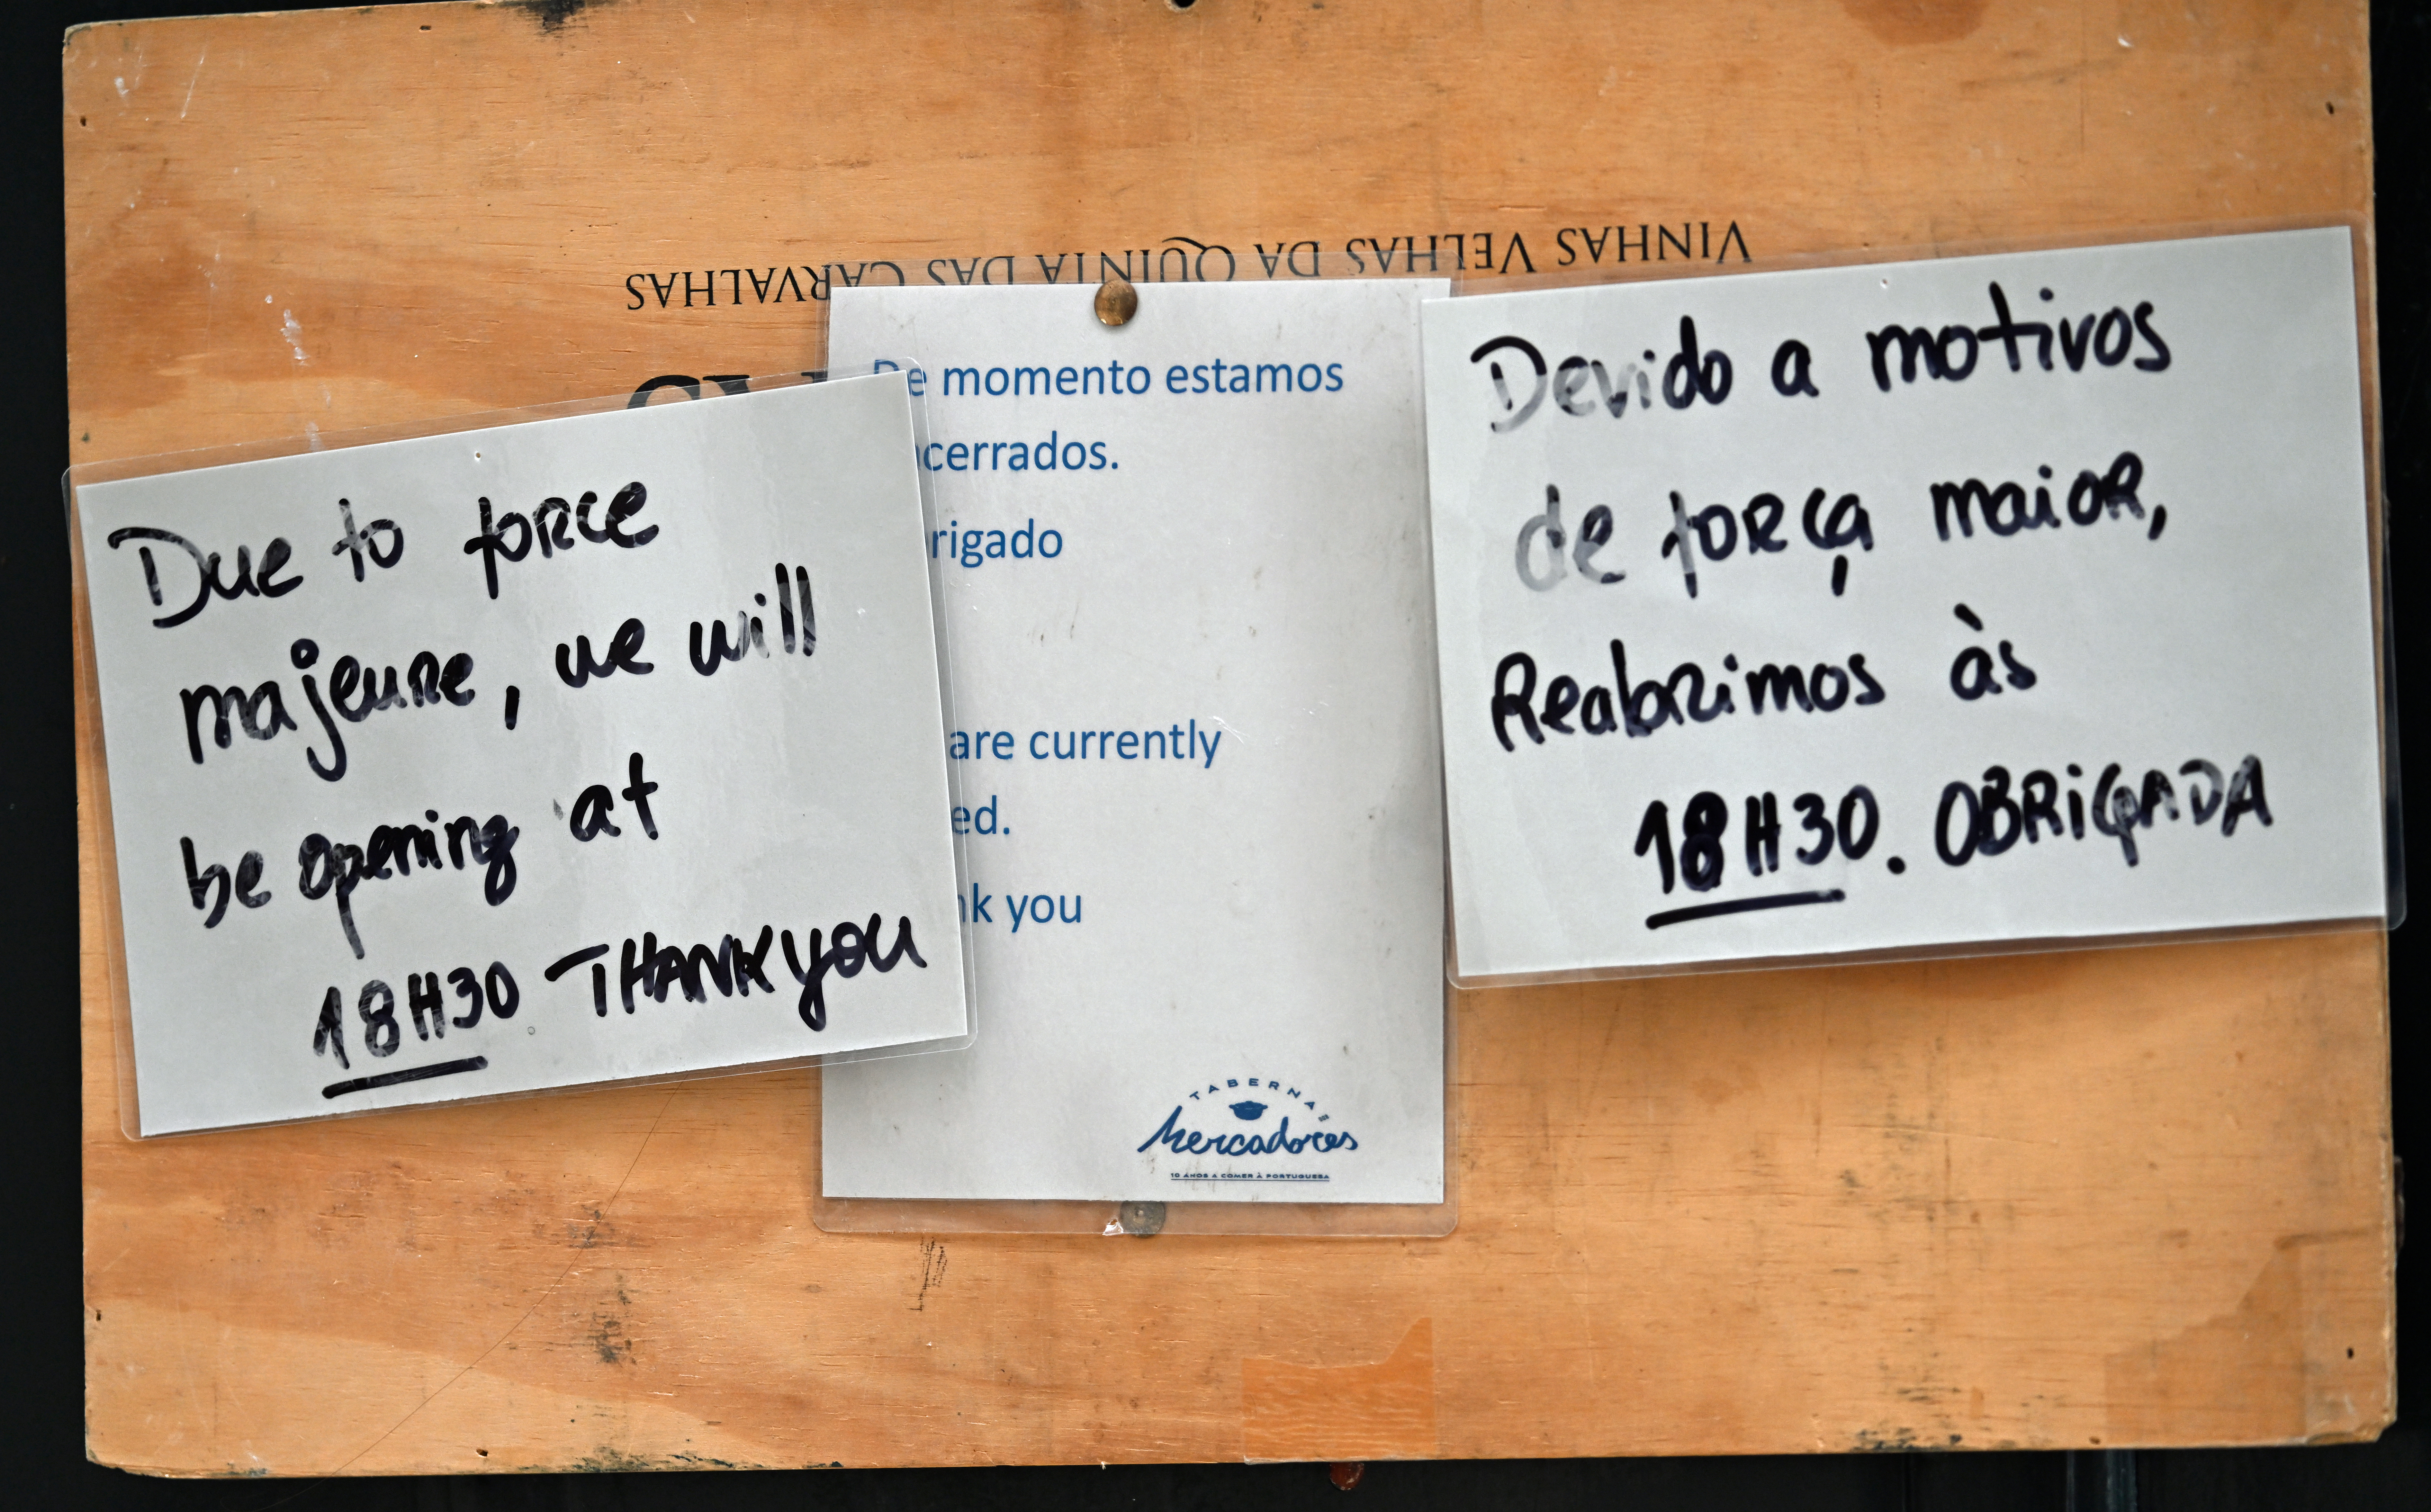 VINHAS VELHAS DA QUINTA DAS CARVALHAS
Due to force
majeure, we will
be opening at
18H30 THANK YOU
De momento estamos
cerrados.
rigado
are currently
ed.
nk you
TABERNA
Mercadores
10 ANOS A COMER À PORTUGUESA
Devido a motivos
de força maior,
Reabrimos às
18H30. OBRIGADA